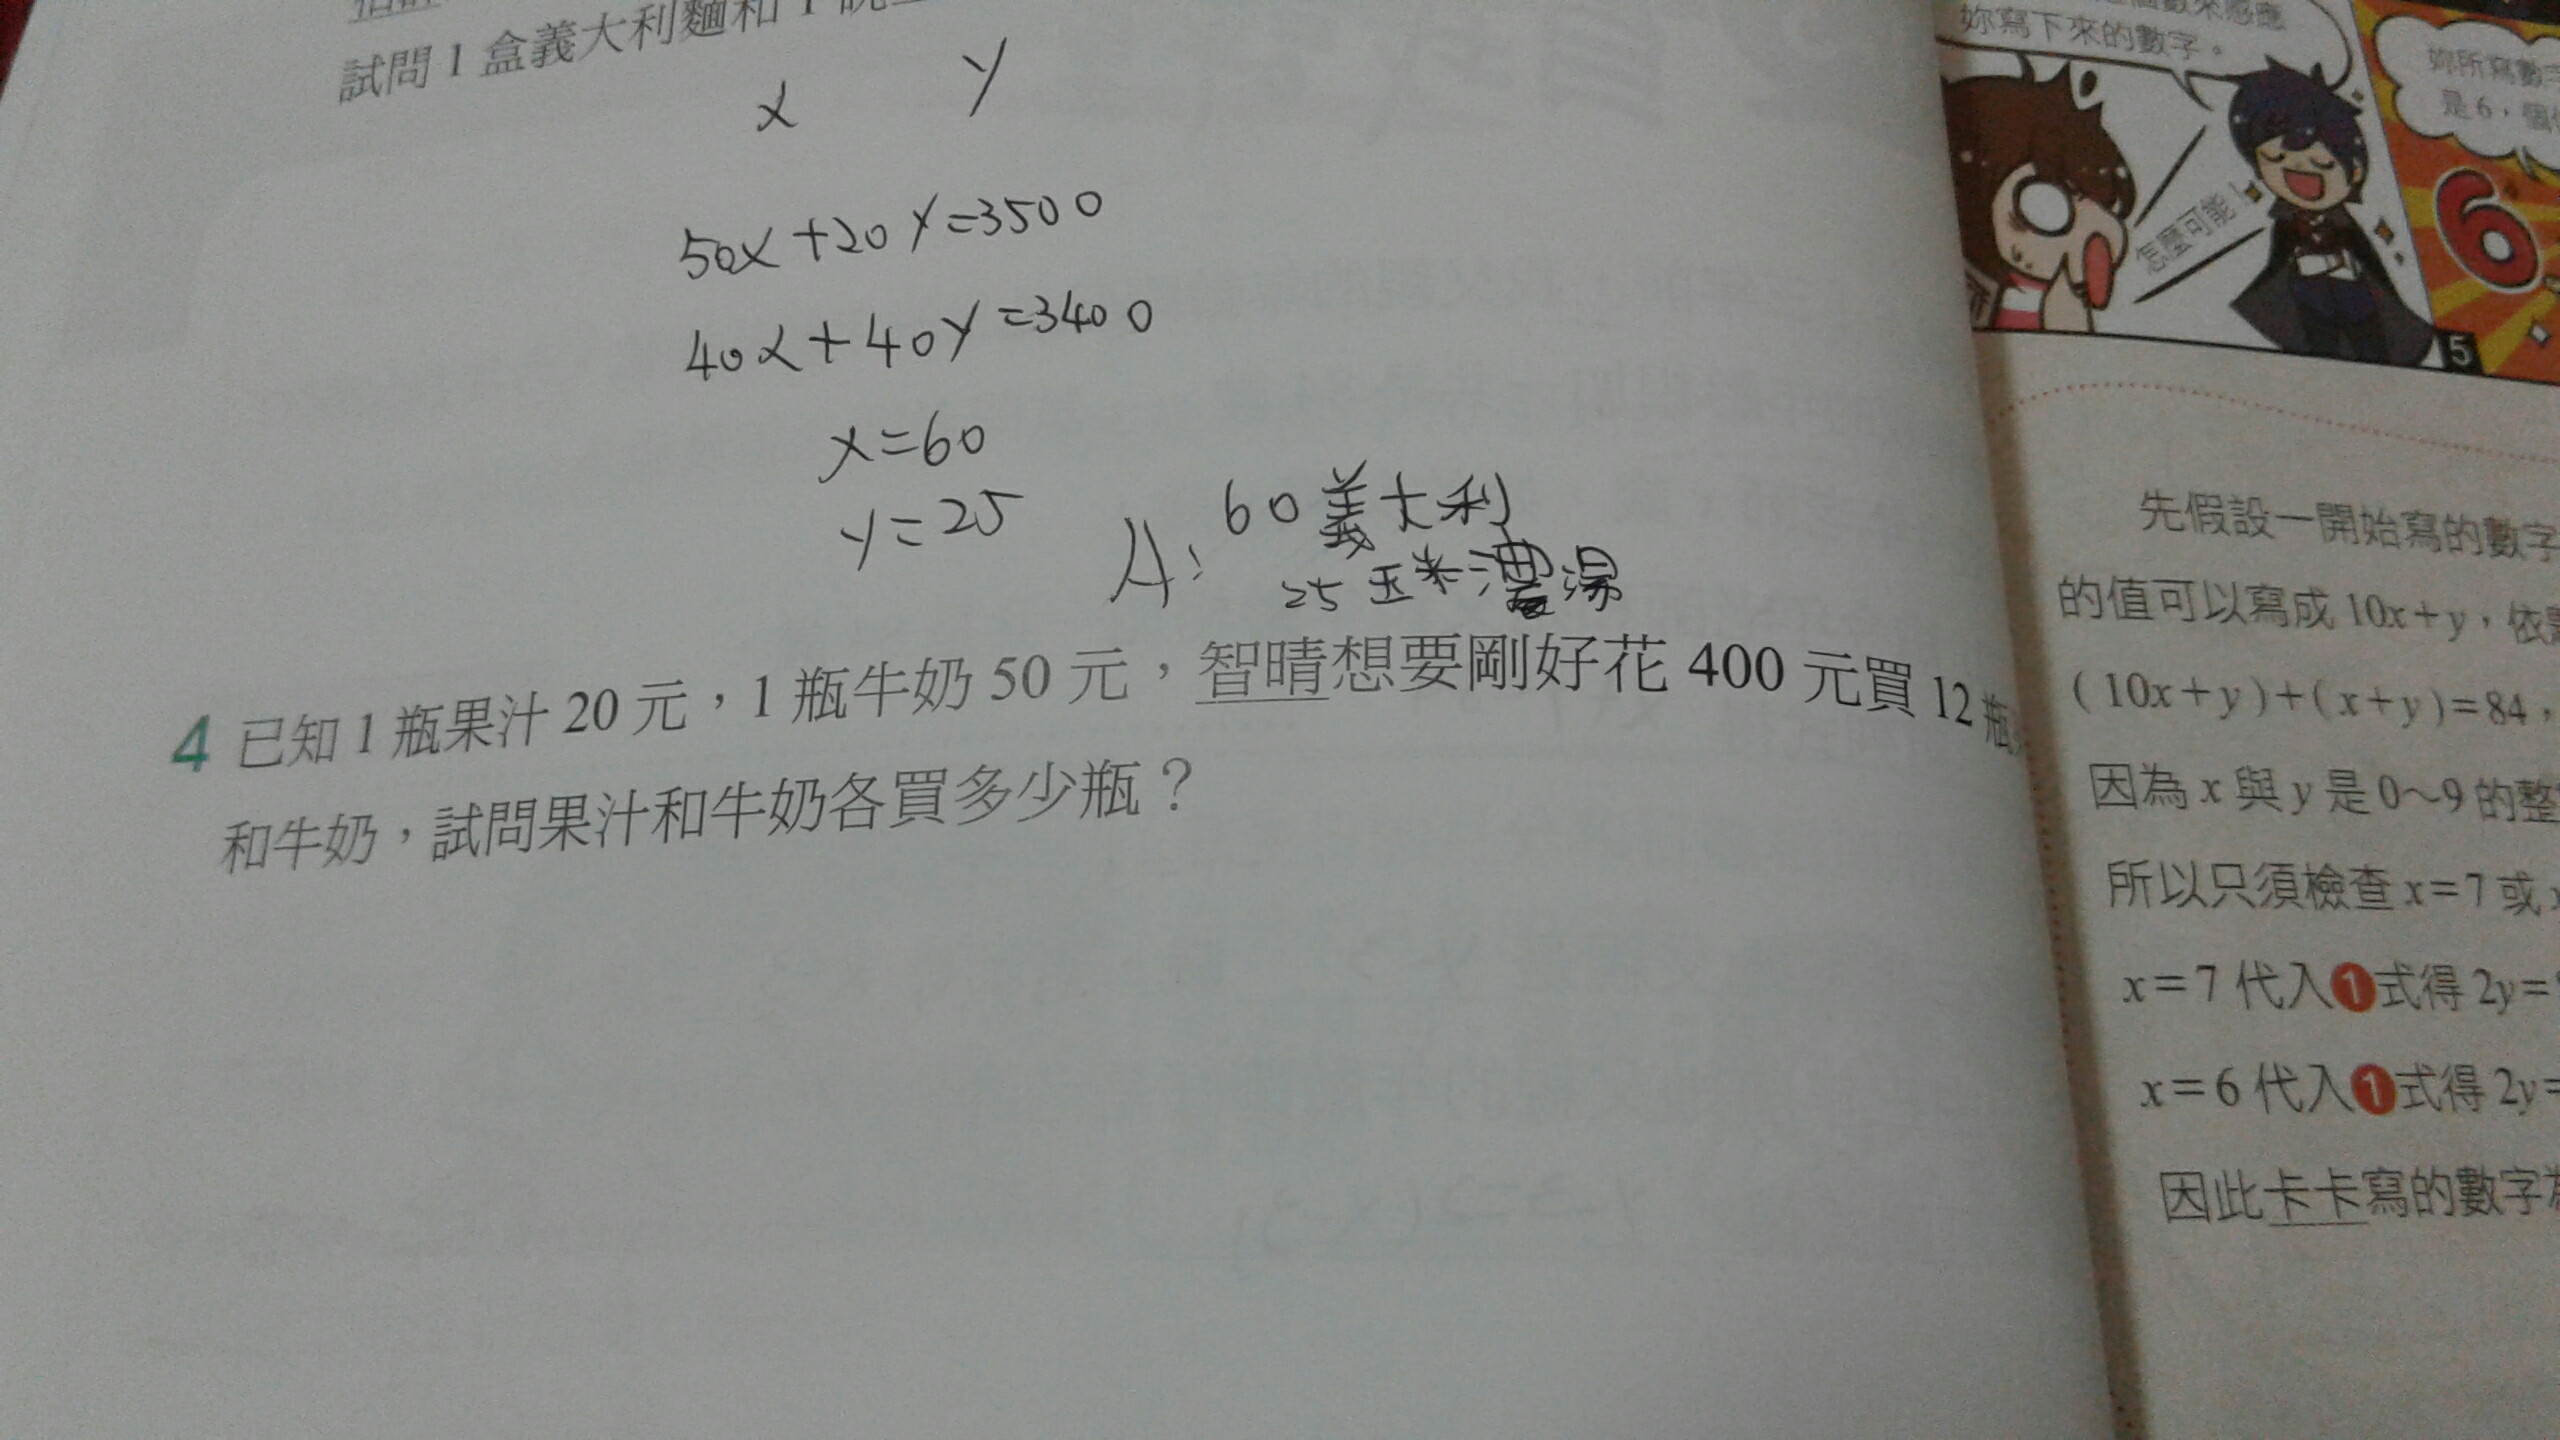 試問 1 盒義大利麵和 1
x y
50x+20y=3500
40x+40y=3400
x=60
y=25
A: 60 義大利
25 玉米濃湯
4 已知 1 瓶果汁 20 元，1 瓶牛奶 50 元，智晴想要剛好花 400 元買 12 瓶
和牛奶，試問果汁和牛奶各買多少瓶？
個數來感應
妳寫下來的數字。
怎麼可能！
妳所寫數字
是 6，個
6
5
先假設一開始寫的數字
的值可以寫成 10x+y，依
(10x+y)+(x+y)=84，
因為 x 與 y 是 0～9 的整
所以只須檢查 x=7 或
x=7 代入❶式得 2y=
x=6 代入❶式得 2y=
因此卡卡寫的數字為